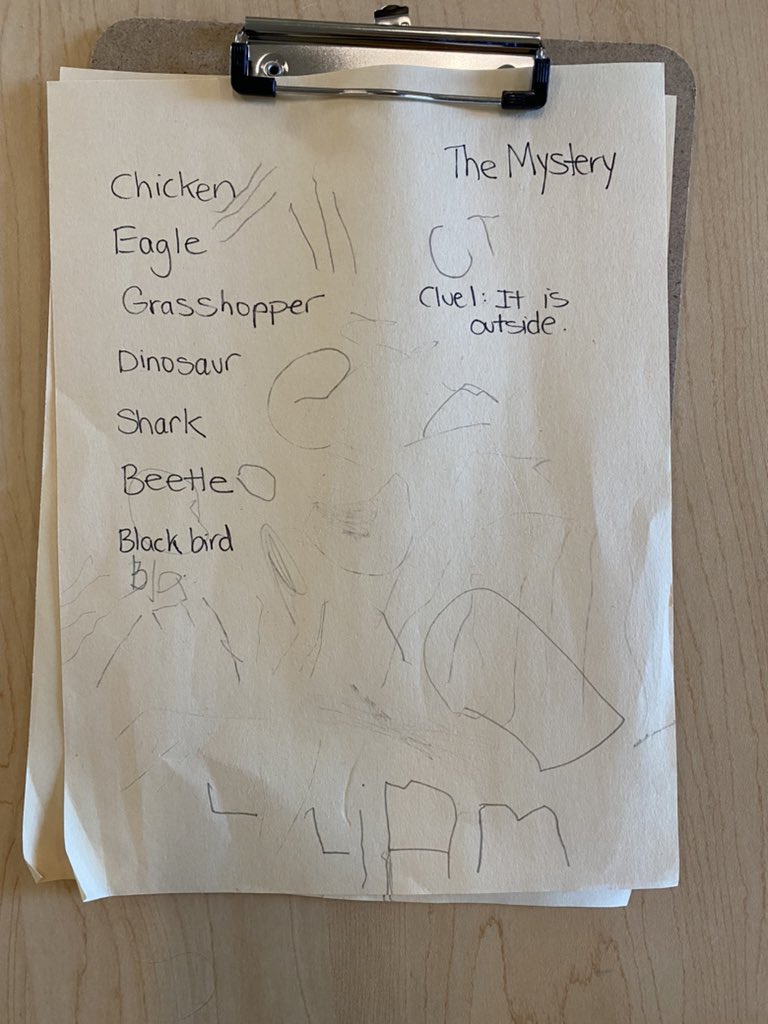 The Mystery
Chicken
Eagle
CT
Grasshopper
Clue1: It is
outside.
Dinosaur
Shark
Beetle
Black bird
Bla
L
LIAM